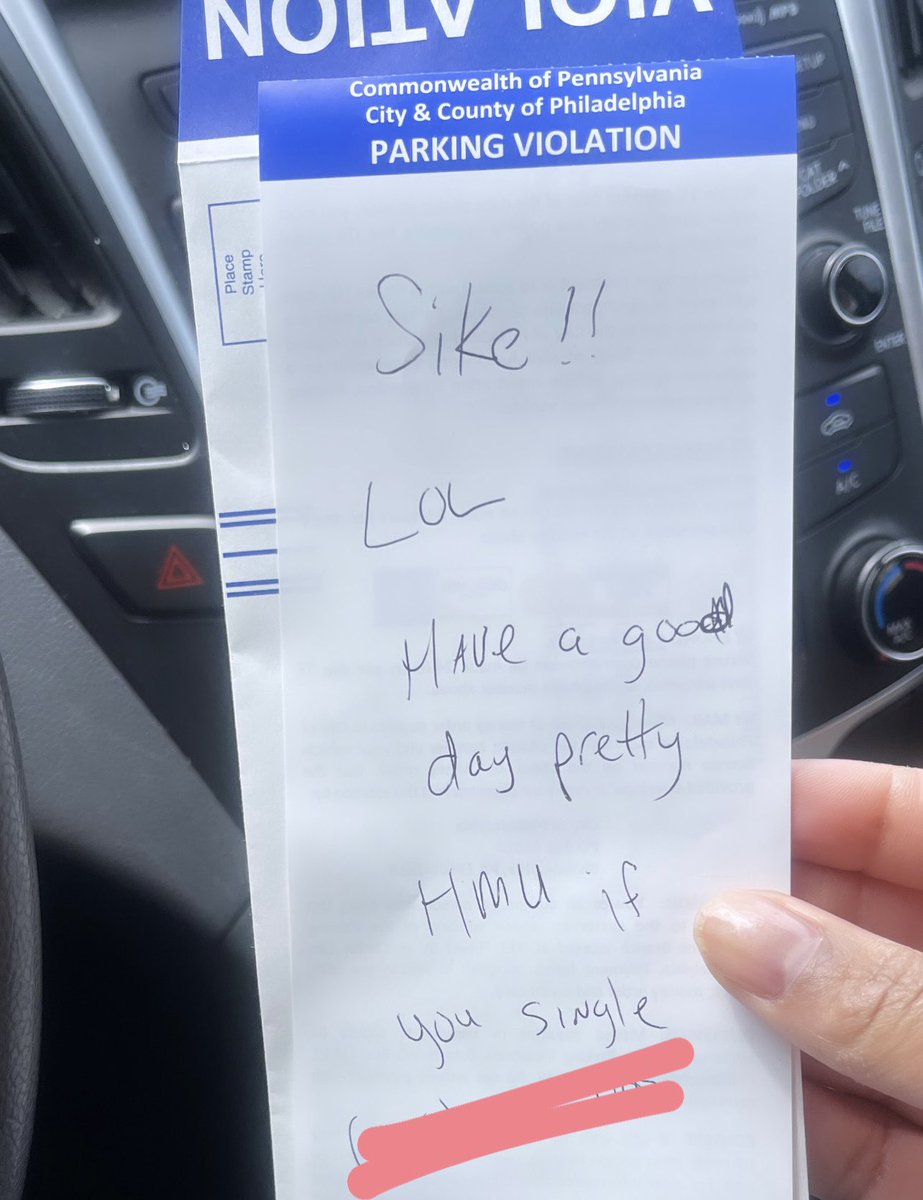 VIOLATION
Commonwealth of Pennsylvania
City & County of Philadelphia
PARKING VIOLATION
Place
Stamp
Here
Sike!!
LOL
Have a good
day pretty
HMU if
you single
SETUP
TUNE
FILE
ENTER
A/C
MAX
A/C